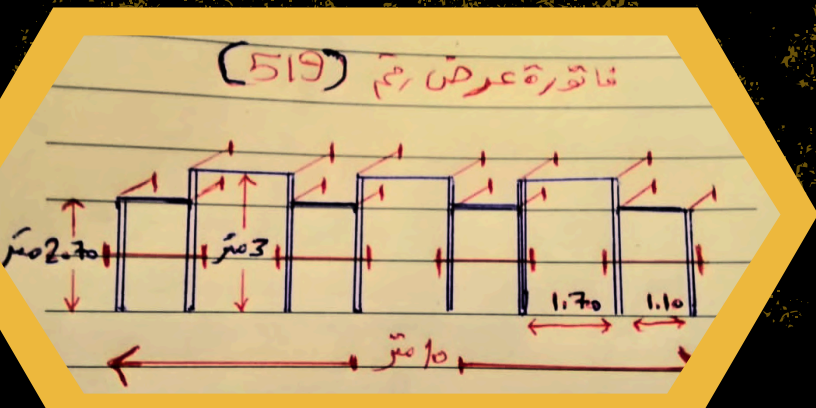 فاتورة عرض رقم (519)
2.70 متر
3 متر
1.70
1.10
10 متر